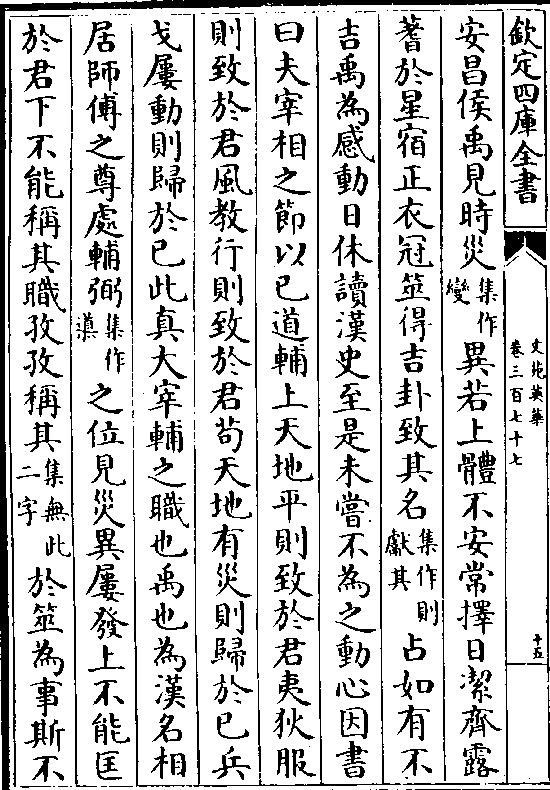 欽定四庫全書
文苑英華
卷三百七十七
十五
安昌侯禹見時災集作變異若上體不安常擇日潔齊露
蓍於星宿正衣冠筮得吉卦致其名集作則獻其占如有不
吉禹為感動日休讀漢史至是未嘗不為之動心因書
曰夫宰相之節以已道輔上天地平則致於君夷狄服
則致於君風教行則致於君苟天地有災則歸於已兵
戈屢動則歸於已此真大宰輔之職也禹也為漢名相
居師傅之尊處輔弼集作導之位見災異屢發上不能匡
於君下不能稱其職孜孜稱其集無此二字於筮為事斯不